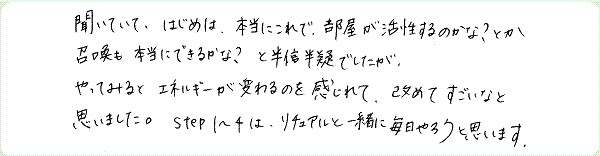 聞いていて、はじめは、本当にこれで、部屋が活性するのかな?とか
召喚も本当にできるかな? と半信半疑でしたが、
やってみると エネルギーが変わるのを感じれて、改めて すごいなと
思いました。 step 1~4は、リチュアルと一緒に毎日やろうと思います。